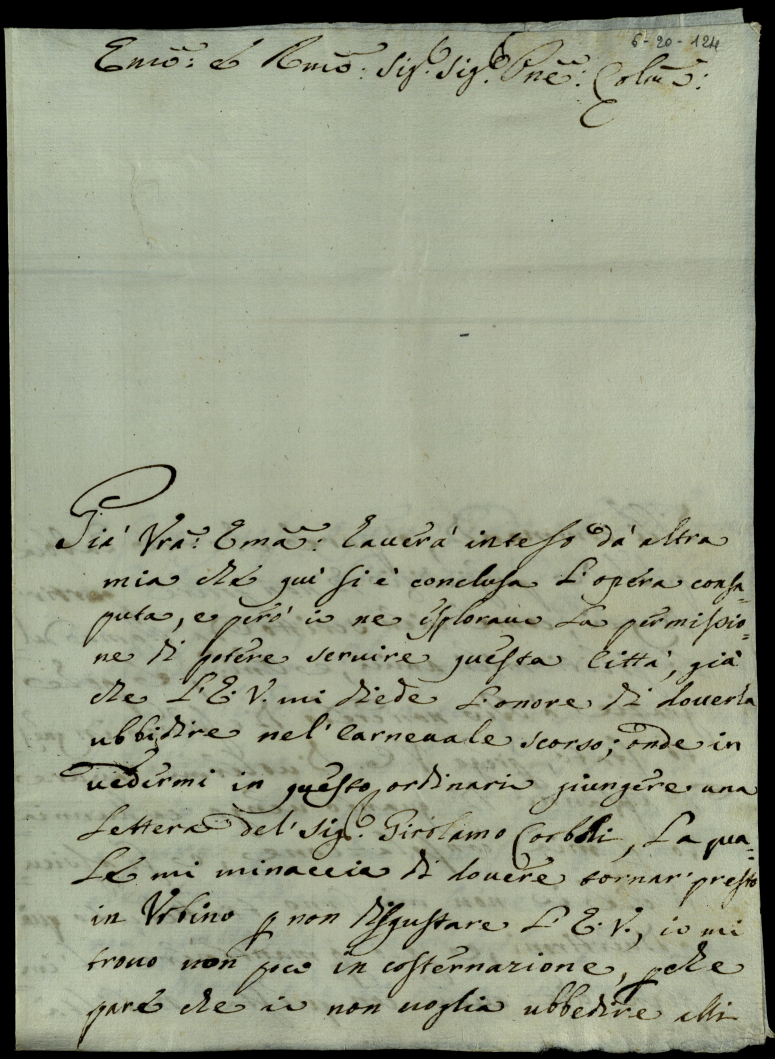 6-20-124
Emo: e Rmo: Sig.r Sig.r Pne: Colmo:
Già Vra: Ema: haverà inteso da altra
mia che qui si è conclusa l'opera consa-
puta, e però io ne esploravo la permissio-
ne di potere servire questa Città, già
che l'E. V. mi diede l'onore di doverla
ubbidire nel' Carnevale scorso; onde in
vedermi in questo ordinario giungere una
lettera del' Sig.r Girolamo Corboli, la qua-
le mi minaccia di dovere tornar' presto
in Urbino p non disgustare l'E. V., io mi
trovo non poco in costernazione, pche
pare che io non voglia ubbedire alli